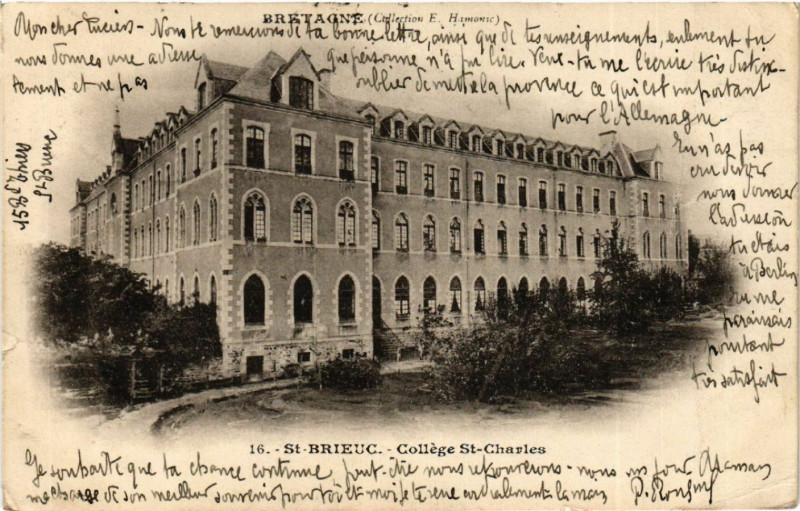 BRETAGNE (Collection E. Hamonic)
Mon cher Lucien - Nous te remercions de ta bonne lettre, ainsi que de tes renseignements, seulement tu
nous donnes une adresse que personne n'a pu lire. Veux-tu me l'écrire très distinc-
tement et ne pas oublier de mettre la province ce qui est important
pour l'Allemagne
Tu n'as pas
cru devoir
nous donner
l'adresse où
tu étais
à Berlin
tu me
paraissais
pourtant
très satisfait
16. - St-BRIEUC. - Collège St-Charles
Je souhaite que ta chance continue, peut-être nous retrouverons-nous un jour Maman
me charge de son meilleur souvenir pour toi et moi je te serre cordialement la main